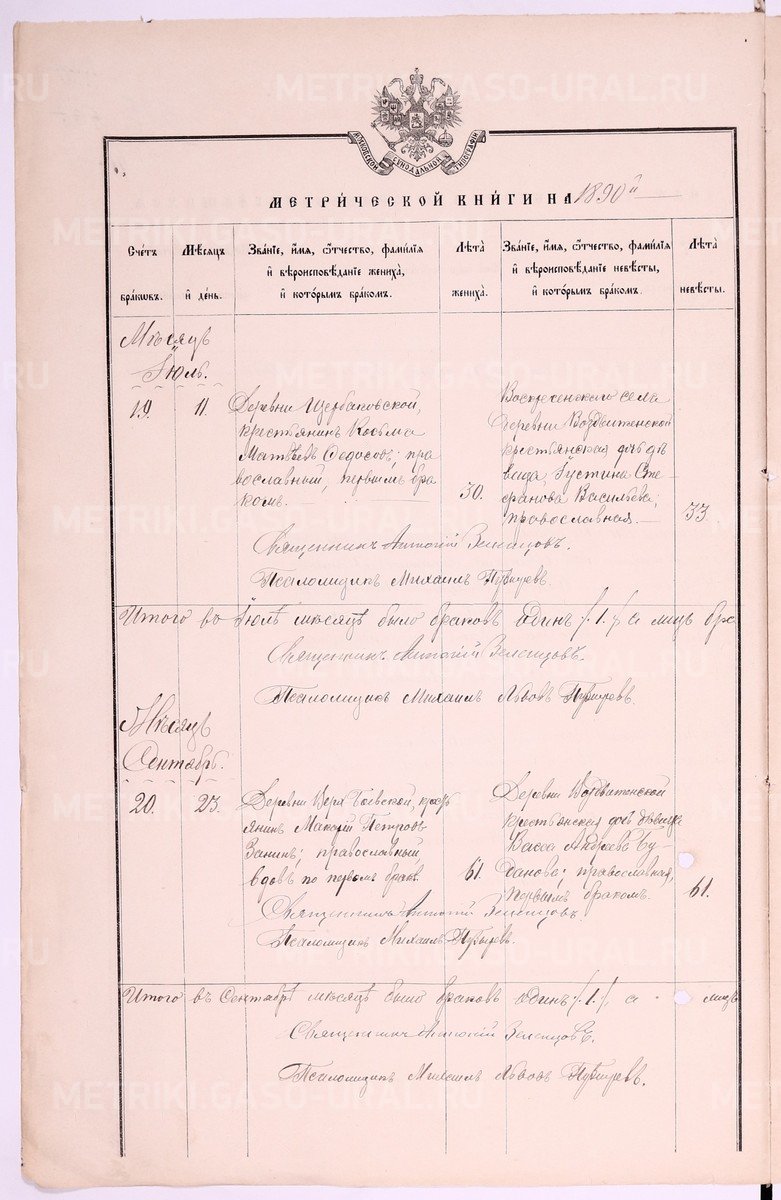 METRIKI.GASO-URAL.RU
МОСКОВСКОЙ СѴНОДАЛЬНОЙ ТИПОГРАФІИ
МЕТРИ́ЧЕСКОЙ КНИ́ГИ НА 1890й
Сче́тъ бра́ковъ.
Мѣ́сяцъ и҆ де́нь.
Зва́нїе, и҆́мя, ѻ҆́тчество, фами́лїя
и҆ вѣроисповѣ́данїе жениха́,
и҆ кото́рымъ бра́комъ.
Лѣта̀ жениха̀.
Зва́нїе, и҆́мя, ѻ҆́тчество, фами́лїя
и҆ вѣроисповѣ́данїе невѣ́сты,
и҆ кото́рымъ бра́комъ.
Лѣта̀ невѣ́сты.
Мѣсяцъ
Іюль.
19. 11.
Деревни Щербаковской
крестьянинъ Косьма
Матѳеевъ Ѳедосовъ; пра
вославный, первымъ бра
комъ.
30.
Воскресенского села
деревни Воздвиженской
крестьянская дочь дѣ
вица, Іустина Сте
фанова Васильева;
православная.
33.
Священникъ Антоній Зеленцовъ.
Псаломщикъ Михаилъ
Итого во Іюлѣ мѣсяцѣ было браковъ одинъ /.1./ а лицъ бра
Священникъ Антоній Зеленцовъ.
Псаломщикъ Михаилъ Львовъ
Мѣсяцъ
Сентябрь.
20. 23.
Деревни Верх Боевской, крест
янинъ Максимъ Петровъ
Занинъ; православный
вдовъ по первомъ бракѣ.
61.
Деревни Воздвиженской
крестьянская дочь дѣвица
Васса Андреева Бу
данова; православная,
первымъ бракомъ.
61.
Священникъ Антоній Зеленцовъ
Псаломщикъ Михаилъ
Итого въ Сентябрѣ мѣсяцѣ было браковъ одинъ /.1./, а лицъ
Священникъ Антоній Зеленцовъ.
Псаломщикъ Михаилъ Львовъ